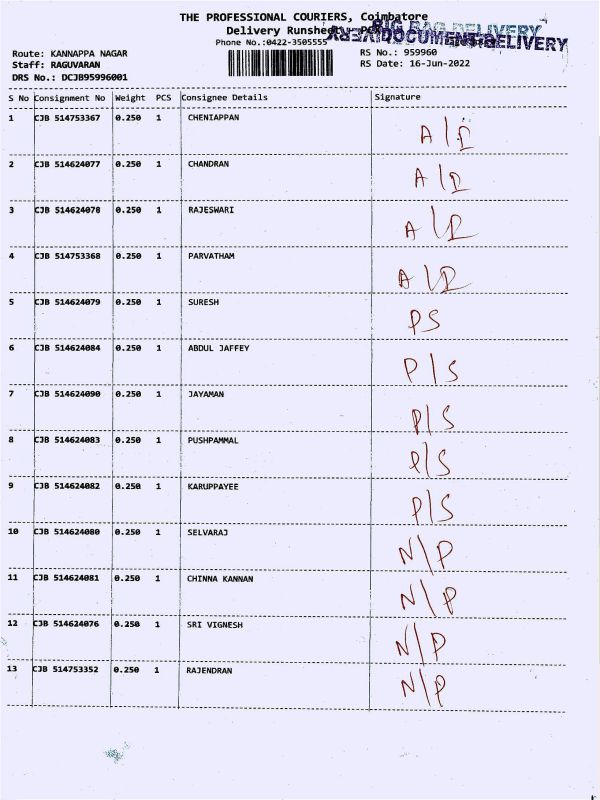 THE PROFESSIONAL COURIERS, Coimbatore
Delivery Runsheet
BIG BAG DELIVERY
DOCUMENT DELIVERY
Phone No.:0422-3505555
Route: KANNAPPA NAGAR RS No.: 959960
Staff: RAGUVARAN RS Date: 16-Jun-2022
DRS No.: DCJB95996001
S No Consignment No Weight PCS Consignee Details Signature
1 CJB 514753367 0.250 1 CHENIAPPAN
2 CJB 514624077 0.250 1 CHANDRAN
3 CJB 514624078 0.250 1 RAJESWARI
4 CJB 514753368 0.250 1 PARVATHAM
5 CJB 514624079 0.250 1 SURESH PS
6 CJB 514624084 0.250 1 ABDUL JAFFEY P/S
7 CJB 514624090 0.250 1 JAYAMAN P/S
8 CJB 514624083 0.250 1 PUSHPAMMAL P/S
9 CJB 514624082 0.250 1 KARUPPAYEE P/S
10 CJB 514624080 0.250 1 SELVARAJ N/P
11 CJB 514624081 0.250 1 CHINNA KANNAN N/P
12 CJB 514624076 0.250 1 SRI VIGNESH N/P
13 CJB 514753352 0.250 1 RAJENDRAN N/P